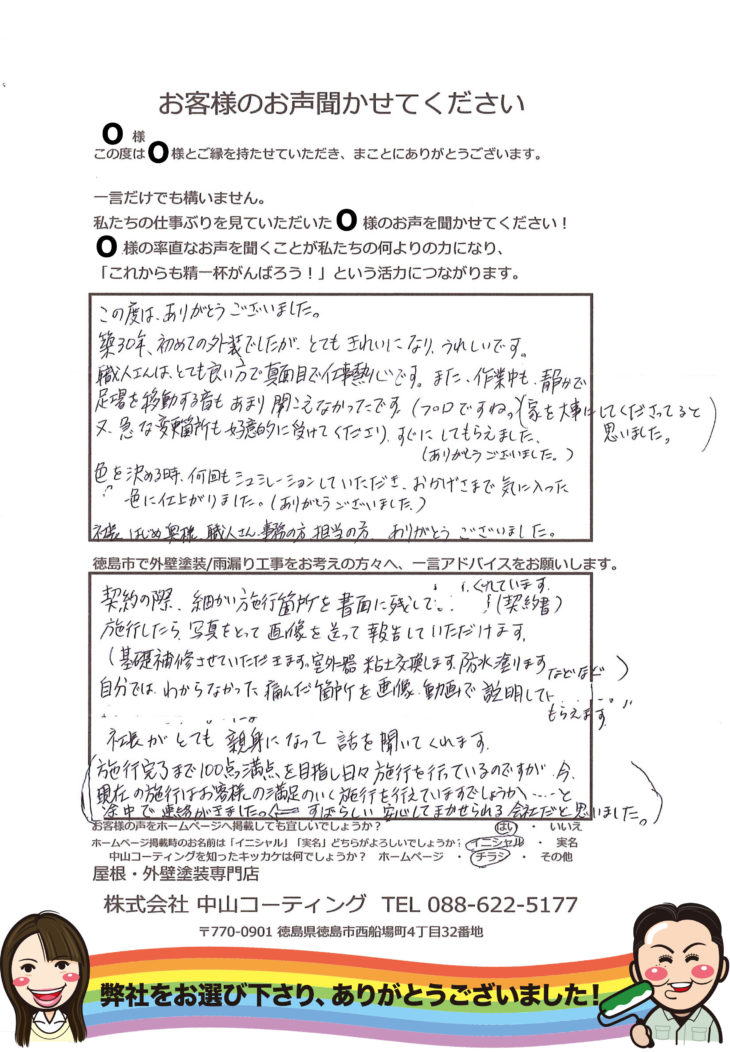 お客様のお声聞かせてください
O 様
この度は O 様とご縁を持たせていただき、まことにありがとうございます。
一言だけでも構いません。
私たちの仕事ぶりを見ていただいた O 様のお声を聞かせてください！
O 様の率直なお声を聞くことが私たちの何よりの力になり、
「これからも精一杯がんばろう！」という活力につながります。
この度は、ありがとうございました。
築30年、初めての外装でしたが、とても きれいになり、うれしいです。
職人さんは、とても良い方で真面目で仕事熱心です。また、作業中も、静かで
足場を移動する音も あまり 聞こえなかったです。(プロですね。) (家を大事にしてくださってると
思いました。)
又、急な変更箇所も 好意的に受けてくださり、すぐに してもらえました、
(ありがとうございました。)
色を決める時、何回も シュミレーションしていただき、おかげさまで 気に入った
色に仕上がりました。(ありがとうございました。)
社長 はじめ 奥様、職人さん、事務の方、担当の方、ありがとう ございました。
徳島市で外壁塗装/雨漏り工事をお考えの方々へ、一言アドバイスをお願いします。
契約の際、細かい施行箇所を 書面に残して くれています。
(契約書)
施行したら、写真をとって 画像を 送って 報告していただけます。
(基礎補修させていただきます。室外器 粘土交換します。防水塗ります などなど)
自分では、わからなかった 痛んだ箇所を 画像、動画で 説明して
もらえます
社長が とても 親身になって 話を 聞いてくれます。
(施行完了まで100点満点を目指し日々施行を行っているのですが、今、
現在の施行はお客様の満足のいく施行を行えていますでしょうか……と
途中で 連絡がきました。) ⇐ すばらしい 安心してまかせられる 会社だと思いました。
お客様の声をホームページへ掲載しても宜しいでしょうか？ はい ・ いいえ
ホームページ掲載時のお名前は「イニシャル」「実名」どちらがよろしいでしょうか？ イニシャル ・ 実名
中山コーティングを知ったキッカケは何でしょうか？ ホームページ ・ チラシ ・ その他
屋根・外壁塗装専門店
株式会社 中山コーティング TEL 088-622-5177
〒770-0901 徳島県徳島市西船場町4丁目32番地
弊社をお選び下さり、ありがとうございました！